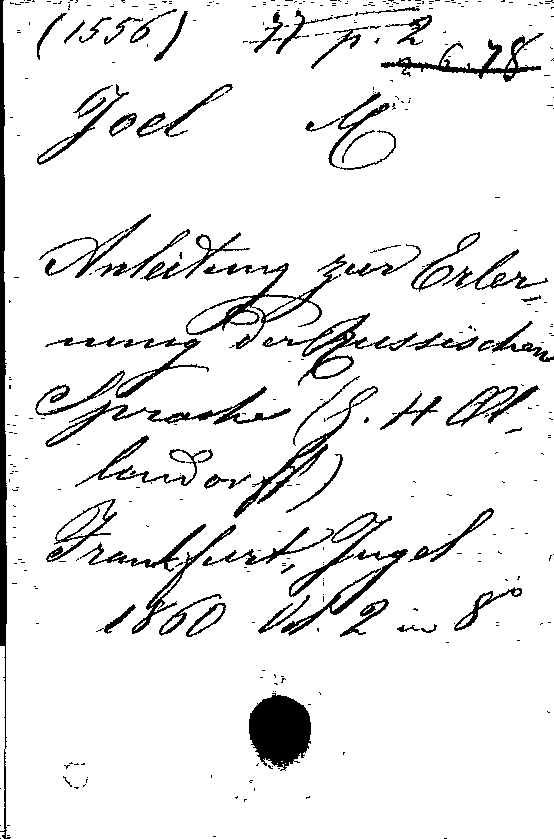 (1556) 77 p. 2
2. 6. 78
Joel M
Anleitung zur Erler,
nung der Russischen
Sprache (H. Ol,
lendorff)
Frankfurt, Jugel
1860 Vol. 2 in 8°